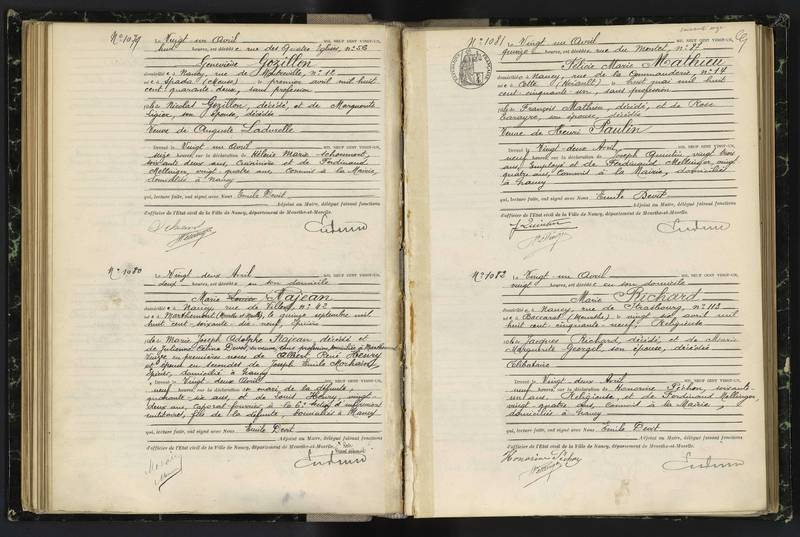 N° 1079 Le Vingt un Avril MIL NEUF CENT VINGT-UN,
huit heures, est décédée rue des Quatre Églises, n° 56
Geneviève Gozillon
domiciliée à Nancy, rue de n° 12
née à Spada (Meuse) le premier avril mil huit
cent quarante deux, sans profession
fille de Nicolas Gozillon, décédé, et de Marguerite
son épouse, décédée
Veuve de Auguste Ladurelle
Dressé le Vingt un Avril MIL NEUF CENT VINGT-UN,
seize heures, sur la déclaration de Marie
soixante deux ans, et de Ferdinand
Mellinger, vingt quatre ans, Commis à la Mairie,
domiciliés à Nancy
qui, lecture faite, ont signé avec Nous Emile Devit
Adjoint au Maire, délégué faisant fonctions
d'officier de l'État civil de la Ville de Nancy, département de Meurthe-et-Moselle.
N° 1080 Le Vingt deux Avril MIL NEUF CENT VINGT-UN,
deux heures, est décédée en son domicile
Marie Najean
domiciliée à Nancy rue de n° 42
née à le quinze septembre mil
huit cent soixante dix neuf,
fille de Marie Joseph Adolphe Najean, décédé et
de Julienne
Veuve en premières noces de Albert René Henry
et épouse en secondes de Joseph Emile
domicilié à Nancy
Dressé le Vingt deux Avril MIL NEUF CENT VINGT-UN,
neuf heures, sur la déclaration du mari de la défunte,
quarante six ans, et de Louis Henry, vingt
deux ans, caporal à la section d'infirmiers
militaires, fils de la défunte, domiciliés à Nancy
qui, lecture faite, ont signé avec Nous Emile Devit
Adjoint au Maire, délégué faisant fonctions
d'officier de l'État civil de la Ville de Nancy, département de Meurthe-et-Moselle.
N° 1081 Le Vingt un Avril MIL NEUF CENT VINGT-UN,
quinze heures, est décédée rue du Montet, n° 87
Félicie Marie Mathieu
domiciliée à Nancy, rue de la Commanderie, n° 14
née à (Hérault) le huit mai mil huit
cent cinquante un, sans profession
fille de François Mathieu, décédé, et de Rose
son épouse, décédée
Veuve de Henri Paulin
Dressé le Vingt deux Avril MIL NEUF CENT VINGT-UN,
neuf heures, sur la déclaration de Joseph Quintin, vingt trois
ans, Employé et de Ferdinand Mellinger, vingt
quatre ans, Commis à la Mairie, domiciliés
à Nancy
qui, lecture faite, ont signé avec Nous Emile Devit
Adjoint au Maire, délégué faisant fonctions
d'officier de l'État civil de la Ville de Nancy, département de Meurthe-et-Moselle.
J. Quintin
N° 1082 Le Vingt un Avril MIL NEUF CENT VINGT-UN,
vingt heures, est décédée en son domicile
Marie Richard
domiciliée à Nancy, rue de Strasbourg, n° 113
née à Baccarat (Meurthe) le vingt six avril mil
huit cent cinquante neuf, Religieuse
fille de Jacques Richard, décédé, et de Marie
Marguerite Georgel, son épouse, décédée
Célibataire
Dressé le Vingt deux Avril MIL NEUF CENT VINGT-UN,
neuf heures, sur la déclaration de Honorine soixante
un ans, Religieuse, et de Ferdinand Mellinger,
vingt quatre ans, commis à la Mairie,
domiciliés à Nancy
qui, lecture faite, ont signé avec Nous Emile Devit
Adjoint au Maire, délégué faisant fonctions
d'officier de l'État civil de la Ville de Nancy, département de Meurthe-et-Moselle.
Honorine